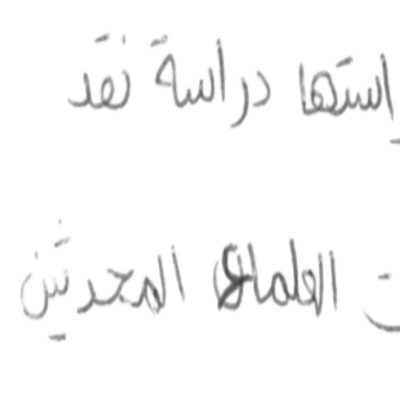 راستها دراسة نقد
ت العلماء المحدثين